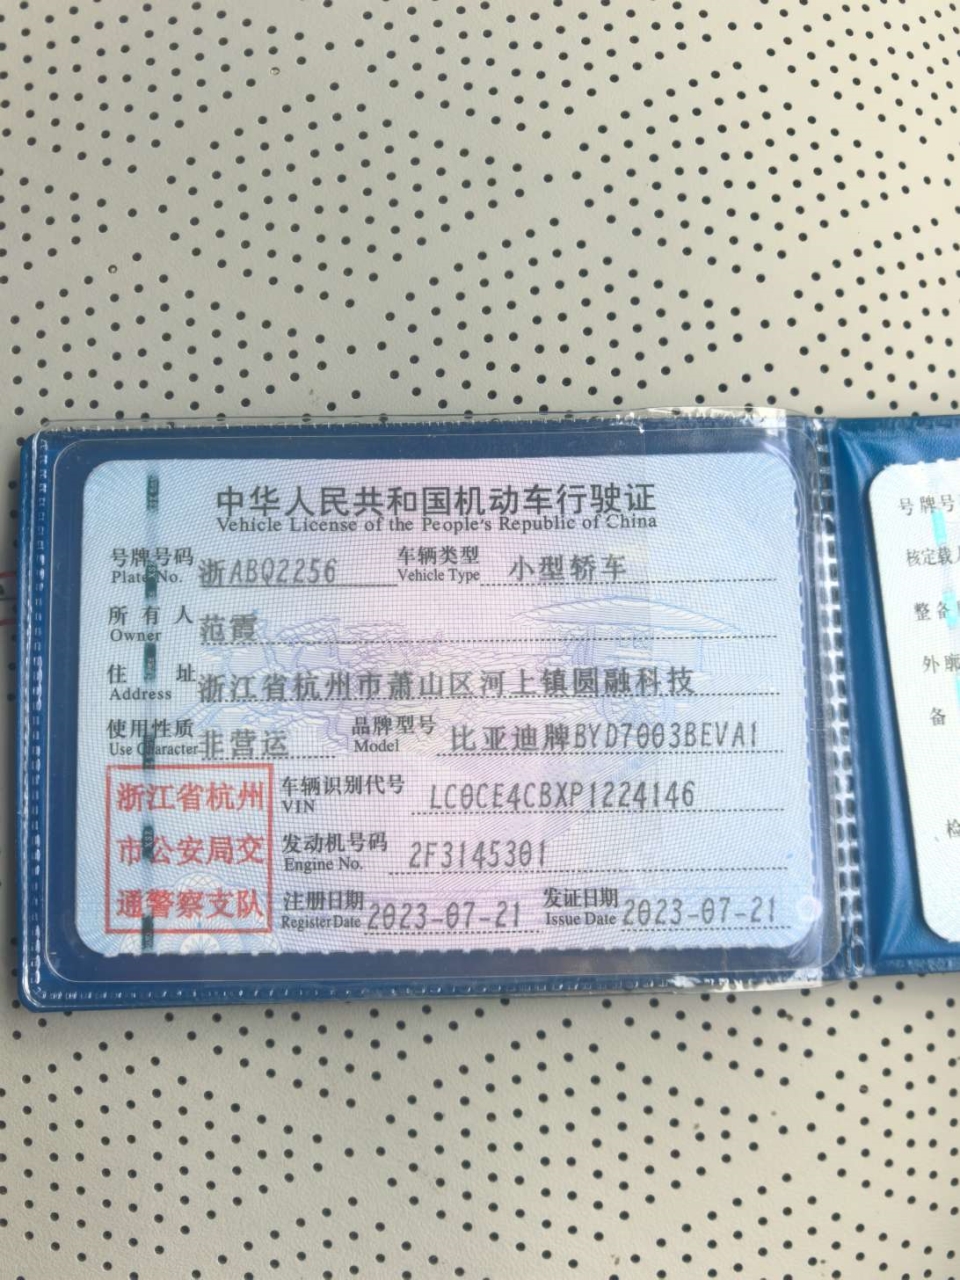 中华人民共和国机动车行驶证
Vehicle License of the People's Republic of China
号牌号码 浙ABQ2256 车辆类型 小型轿车
Plate No. Vehicle Type
所有人 范霞
Owner
住址 浙江省杭州市萧山区河上镇圆融科技
Address
使用性质 非营运 品牌型号 比亚迪牌BYD7003BEVA1
Use Character Model
浙江省杭州
市公安局交
通警察支队
车辆识别代号 LC0CE4CBXP1224146
VIN
发动机号码 2F3145301
Engine No.
注册日期 2023-07-21 发证日期 2023-07-21
Register Date Issue Date
号牌号
核定载
整备
外廓
备
检